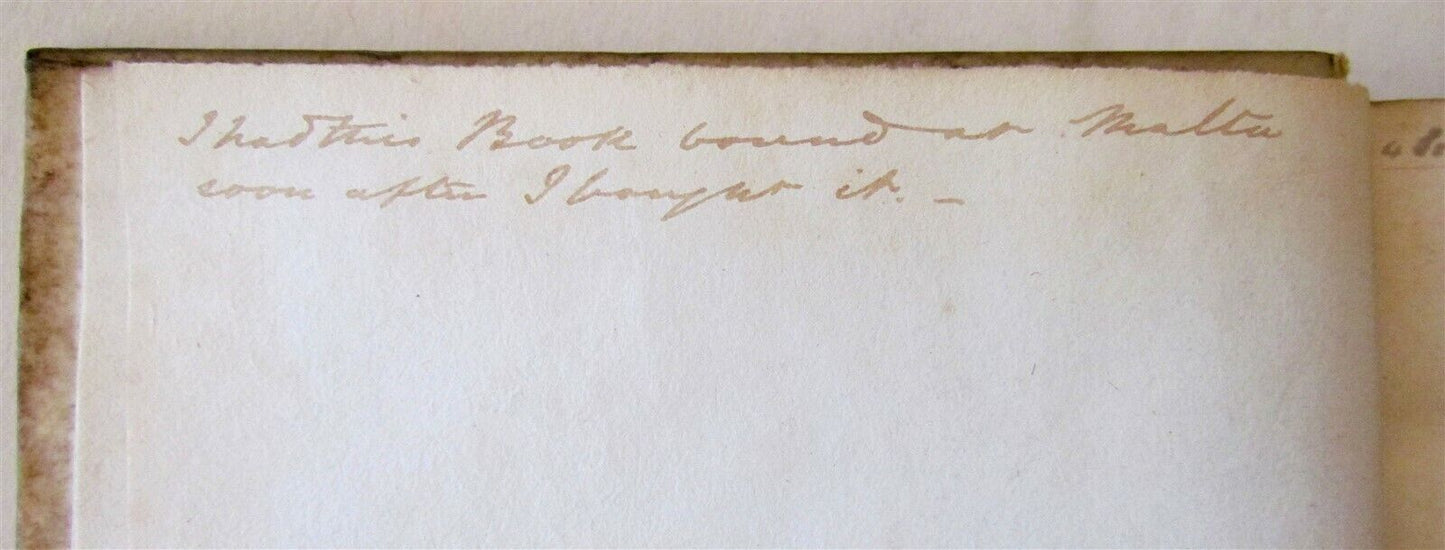 I had this Book bound at Malta
soon after I bought it. –